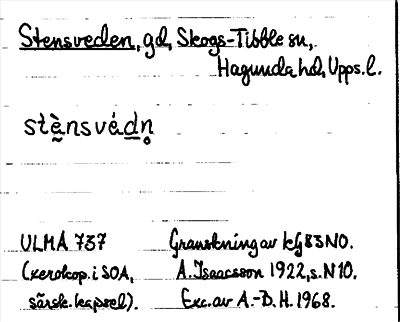 Stensveden, gd, Skogs-Tibble sn,
Hagunda hd, Upps.l.
stḛ̀nsvéd̲n̥
ULMA 737 Granskning av kG 83 NO.
(xerokop. i SOA, A. Isaacsson 1922, s. N10.
särsk. kapsel). Exc. av A.-D. H. 1968.